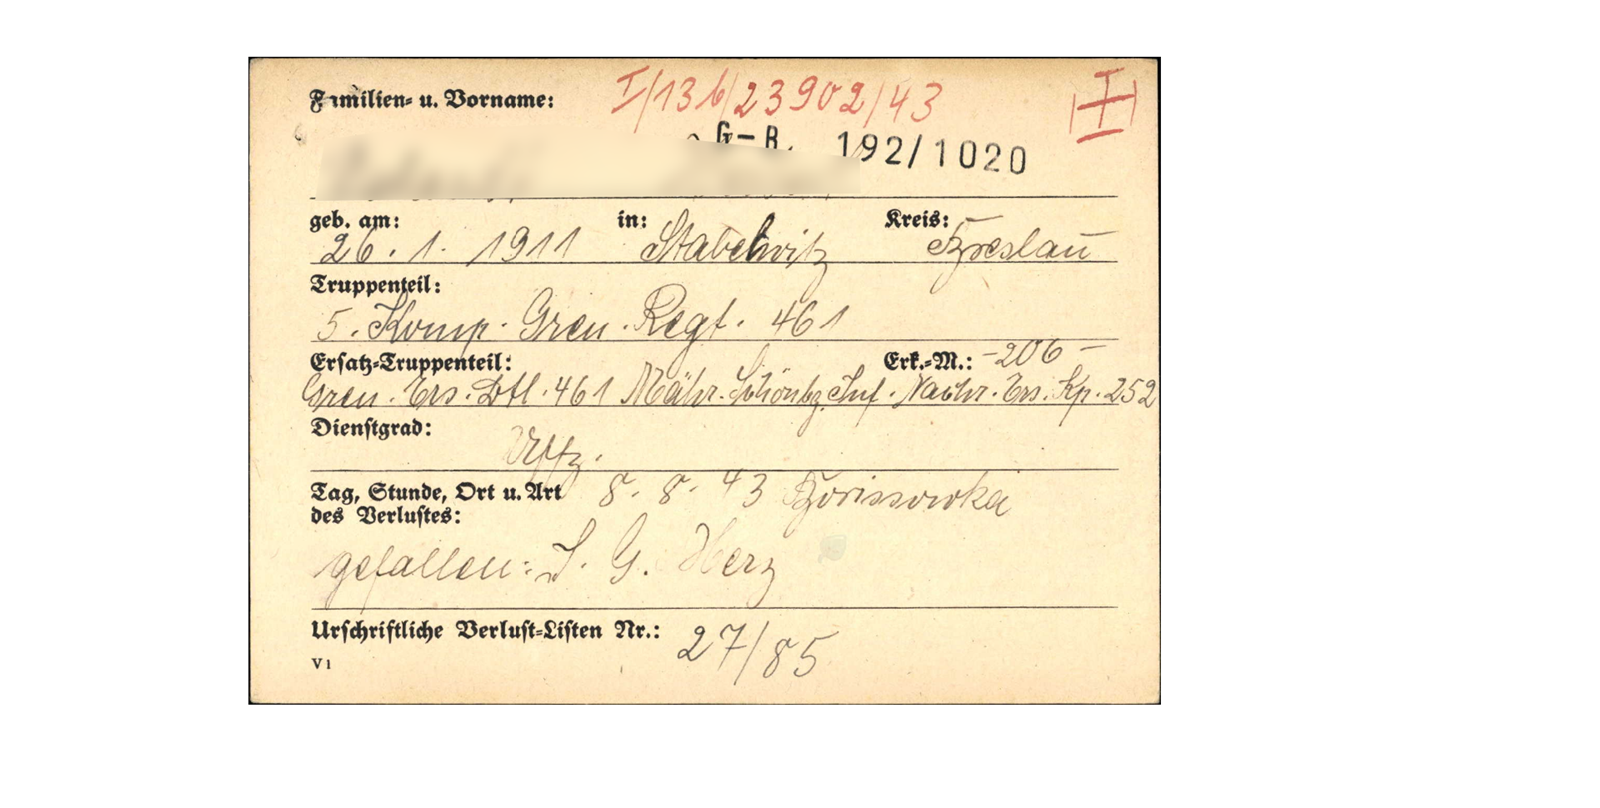 Familien- u. Vorname: I/136/23902/43 I
G-R. 192/1020
geb. am: in: Kreis:
26. 1. 1911 Stabelwitz Breslau
Truppenteil:
5. Komp. Gren. Regt. 461
Ersatz-Truppenteil: Erk.-M.: -206-
Gren. Ers. Btl. 461 Mähr. Schönbg. Inf. Nachr. Ers. Kp. 252
Dienstgrad:
Uffz.
Tag, Stunde, Ort u. Art 8. 8. 43 Borissowka
des Verlustes:
gefallen: I. G. Herz
Urschriftliche Verlust-Listen Nr.: 27/85
V1